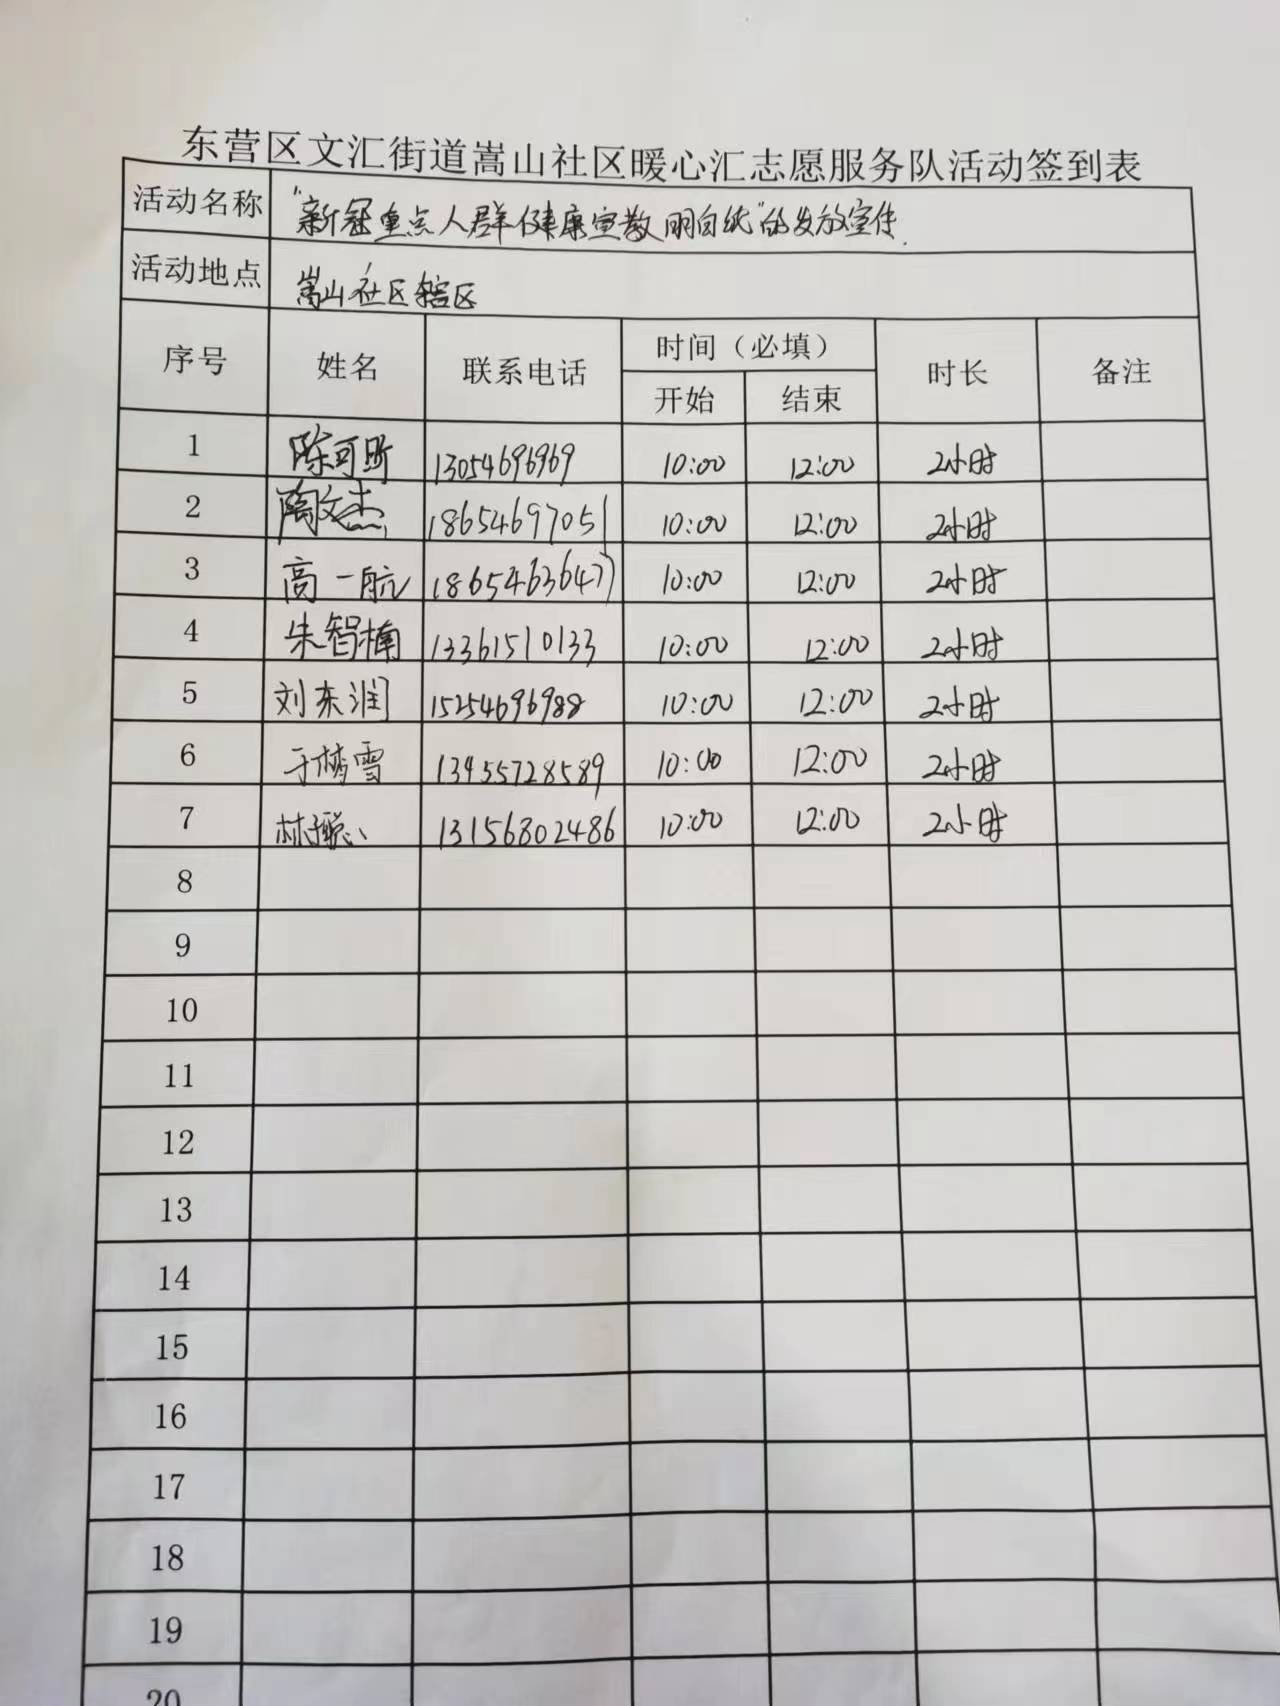 东营区文汇街道嵩山社区暖心汇志愿服务队活动签到表
活动名称 "新冠重点人群健康宣教明白纸"的发放宣传.
活动地点 嵩山社区辖区
序号 姓名 联系电话 时间（必填） 时长 备注
开始 结束
1 陈可昕 13054696969 10:00 12:00 2小时
2 陶文杰 18654697051 10:00 12:00 2小时
3 高一航 18654636477 10:00 12:00 2小时
4 朱智楠 13361510133 10:00 12:00 2小时
5 刘东润 15254696988 10:00 12:00 2小时
6 于梦雪 13455728589 10:00 12:00 2小时
7 13156802486 10:00 12:00 2小时
8
9
10
11
12
13
14
15
16
17
18
19
20